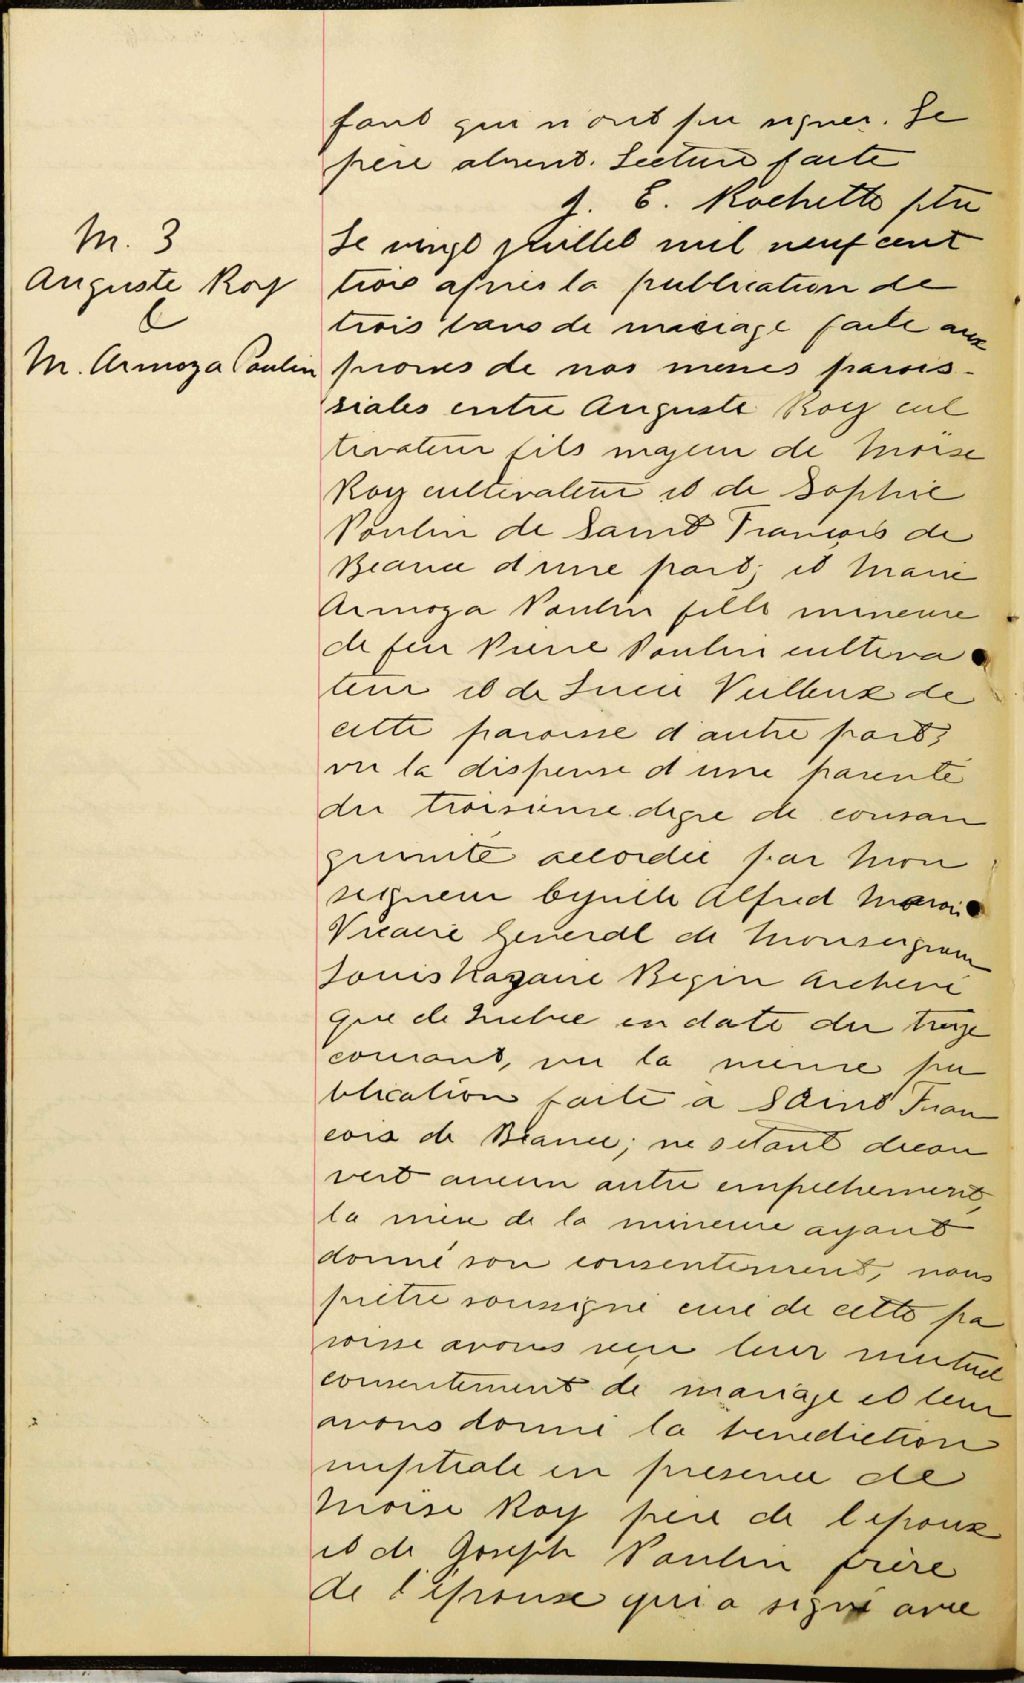 fant qui n'ont pu signer. Le
père absent. Lecture faite
J. E. Rochette ptre
M. 3
Auguste Roy
&
M. Armoza Poulin
Le vingt juillet mil neuf cent
trois après la publication de
trois bans de mariage faite aux
prones de nos messes parois-
siales entre Auguste Roy cul
tivateur fils majeur de Moïse
Roy cultivateur et de Sophie
Poulin de Saint François de
Beauce d'une part; et Marie
Armoza Poulin fille mineure
de feu Pierre Poulin cultiva
teur et de Lucie Veilleux de
cette paroisse d'autre part;
vu la dispense d'une parenté
du troisième degre de consan
guinité accordée par Mon
seigneur Cyrille Alfred Marois
Vicaire Général de Monseigneur
Louis Nazaire Begin Archevê
que de Québec en date du treize
courant, vu la même pu
blication faite à Saint Fran
cois de Beauce; ne s'étant decou
vert aucun autre empêchement,
la mère de la mineure ayant
donné son consentement, nous
prêtre soussigné curé de cette pa
roisse avons reçu leur mutuel
consentement de mariage et leur
avons donné la benediction
nuptiale en présence de
Moïse Roy père de l'epoux
et de Joseph Poulin frère
de l'épouse qui a signé avec